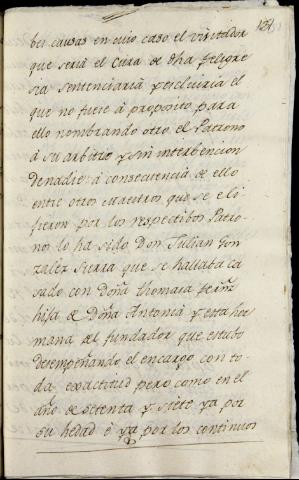 121
bes causas en cuio caso el visitador
que seria el Cura de dha feligre
sia sentenciaria y escluiria el
que no fuese à proposito para
ello nombrando otro el Patrono
â su arbitrio y sin interbencion
de nadie: à consecuencia de ello
entre otros cuatros que se eli
jieron por los respectibos Patro-
nos lo ha sido Don Julian Gon
zalez Sierra que se hallaba ca
sado con Doña Thomasa fernz
hija de Doña Antonia y esta her
mana del fundador que estubo
desempeñando el encargo con to-
da exactitud pero como en el
año de setenta y siete ya por
su hedad ê ya por los continuos